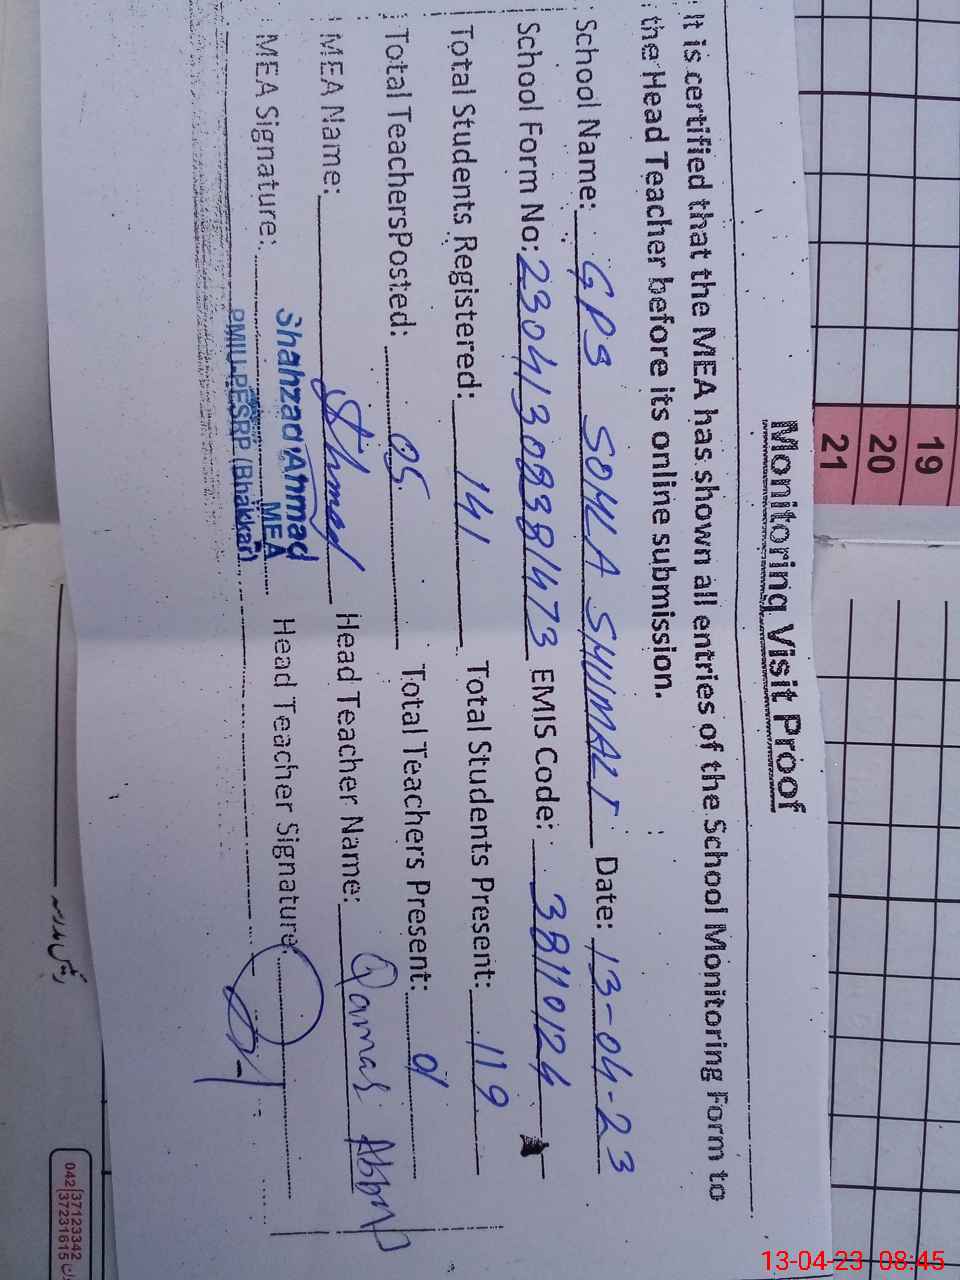 Monitoring Visit Proof
It is certified that the MEA has shown all entries of the School Monitoring Form to
the Head Teacher before its online submission.
School Name: GPS SOHLA SHUIMALI Date: 13-04-23
School Form No: 23041309381473 EMIS Code: 38110124
Total Students Registered: 141 Total Students Present: 119
Total TeachersPosted: 05 Total Teachers Present:
MEA Name: Ahmad Head Teacher Name: Qamar Abbas
MEA Signature: Head Teacher Signature:
Shahzad Ahmad
MEA
PMIU-PESRP (Bhakkar)
19
20
21
042 37123342
37231615
13-04-23 08:45